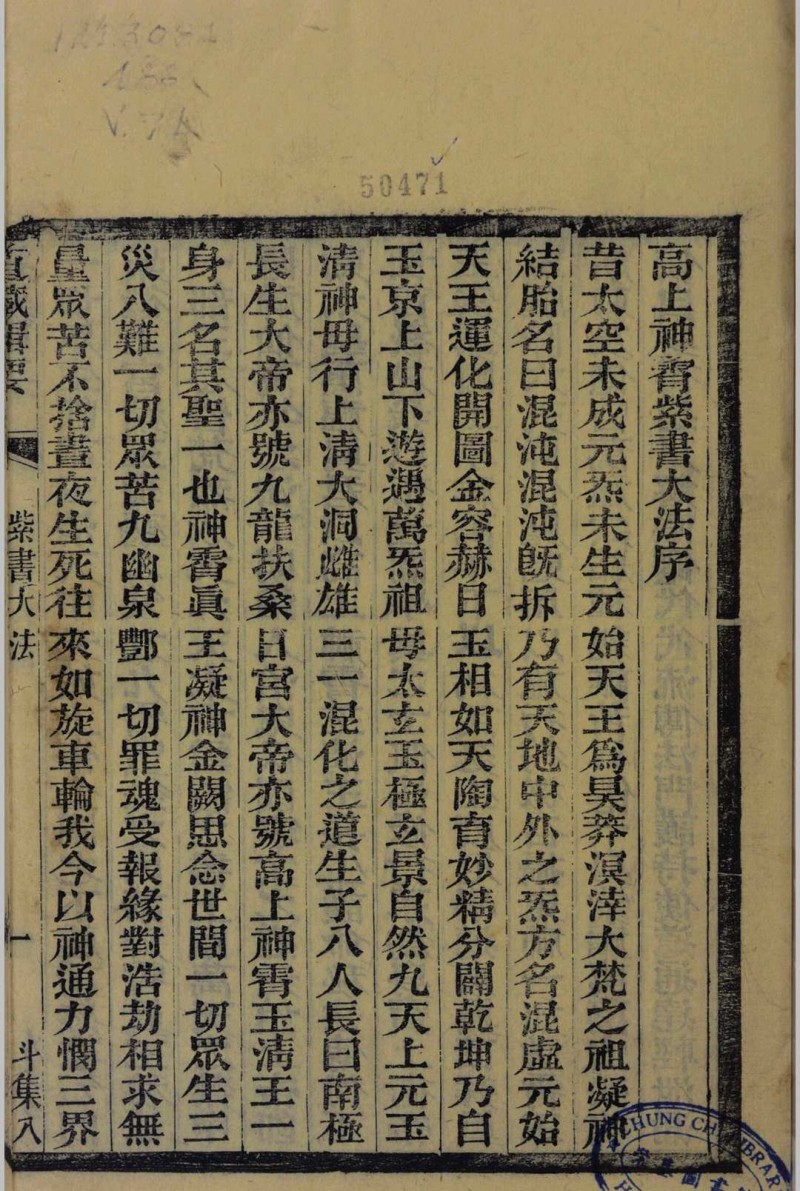 50471
高上神霄紫書大法序
昔太空未成元炁未生元始天王爲昊莽溟涬大梵之祖凝神
結胎名曰混沌混沌旣拆乃有天地中外之炁方名混虛元始
天王運化開圖金容赫日玉相如天陶育妙精分闢乾坤乃自
玉京上山下遊遇萬炁祖母太玄玉極玄景自然九天上元玉
淸神母行上淸大洞雌雄三一混化之道生子八人長曰南極
長生大帝亦號九龍扶桑日宮大帝亦號高上神霄玉淸王一
身三名其聖一也神霄眞王凝神金闕思念世間一切眾生三
災八難一切眾苦九幽泉酆一切罪魂受報緣對浩劫相求無
量眾苦不捨晝夜生死往來如旋車輪我今以神通力憫三界
道藏輯要 紫書大法 一 斗集八